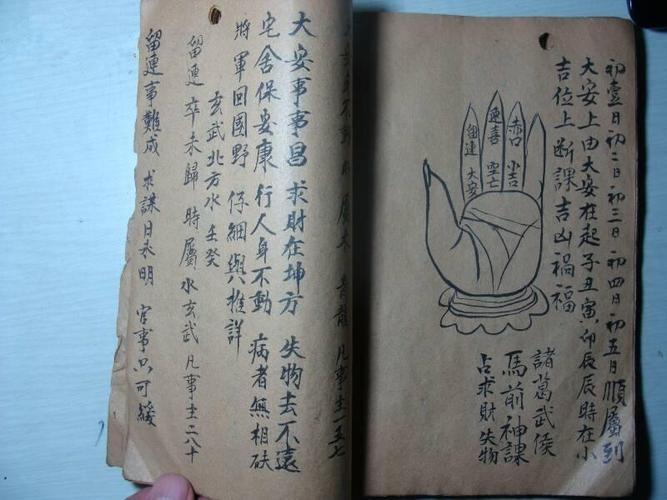 初壹日初二日初三日初四日初五日順屬到
大安上由大安在起子丑寅卯辰辰時在小
吉位上断課吉凶禍福
赤口 小吉
速喜 空亡
留連 大安
諸葛武侯
馬前神課
占求財失物
身不動 屬木 青龍 凡事主一五七
大安事事昌 求財在坤方 失物去不遠
宅舍保安康 行人身不動 病者無相砆
將軍回國野 仔細與推詳
玄武北方水 壬癸
留連 卒未歸 時屬水玄武 凡事主二八十
留連事難成 求謀日未明 官事只可緩